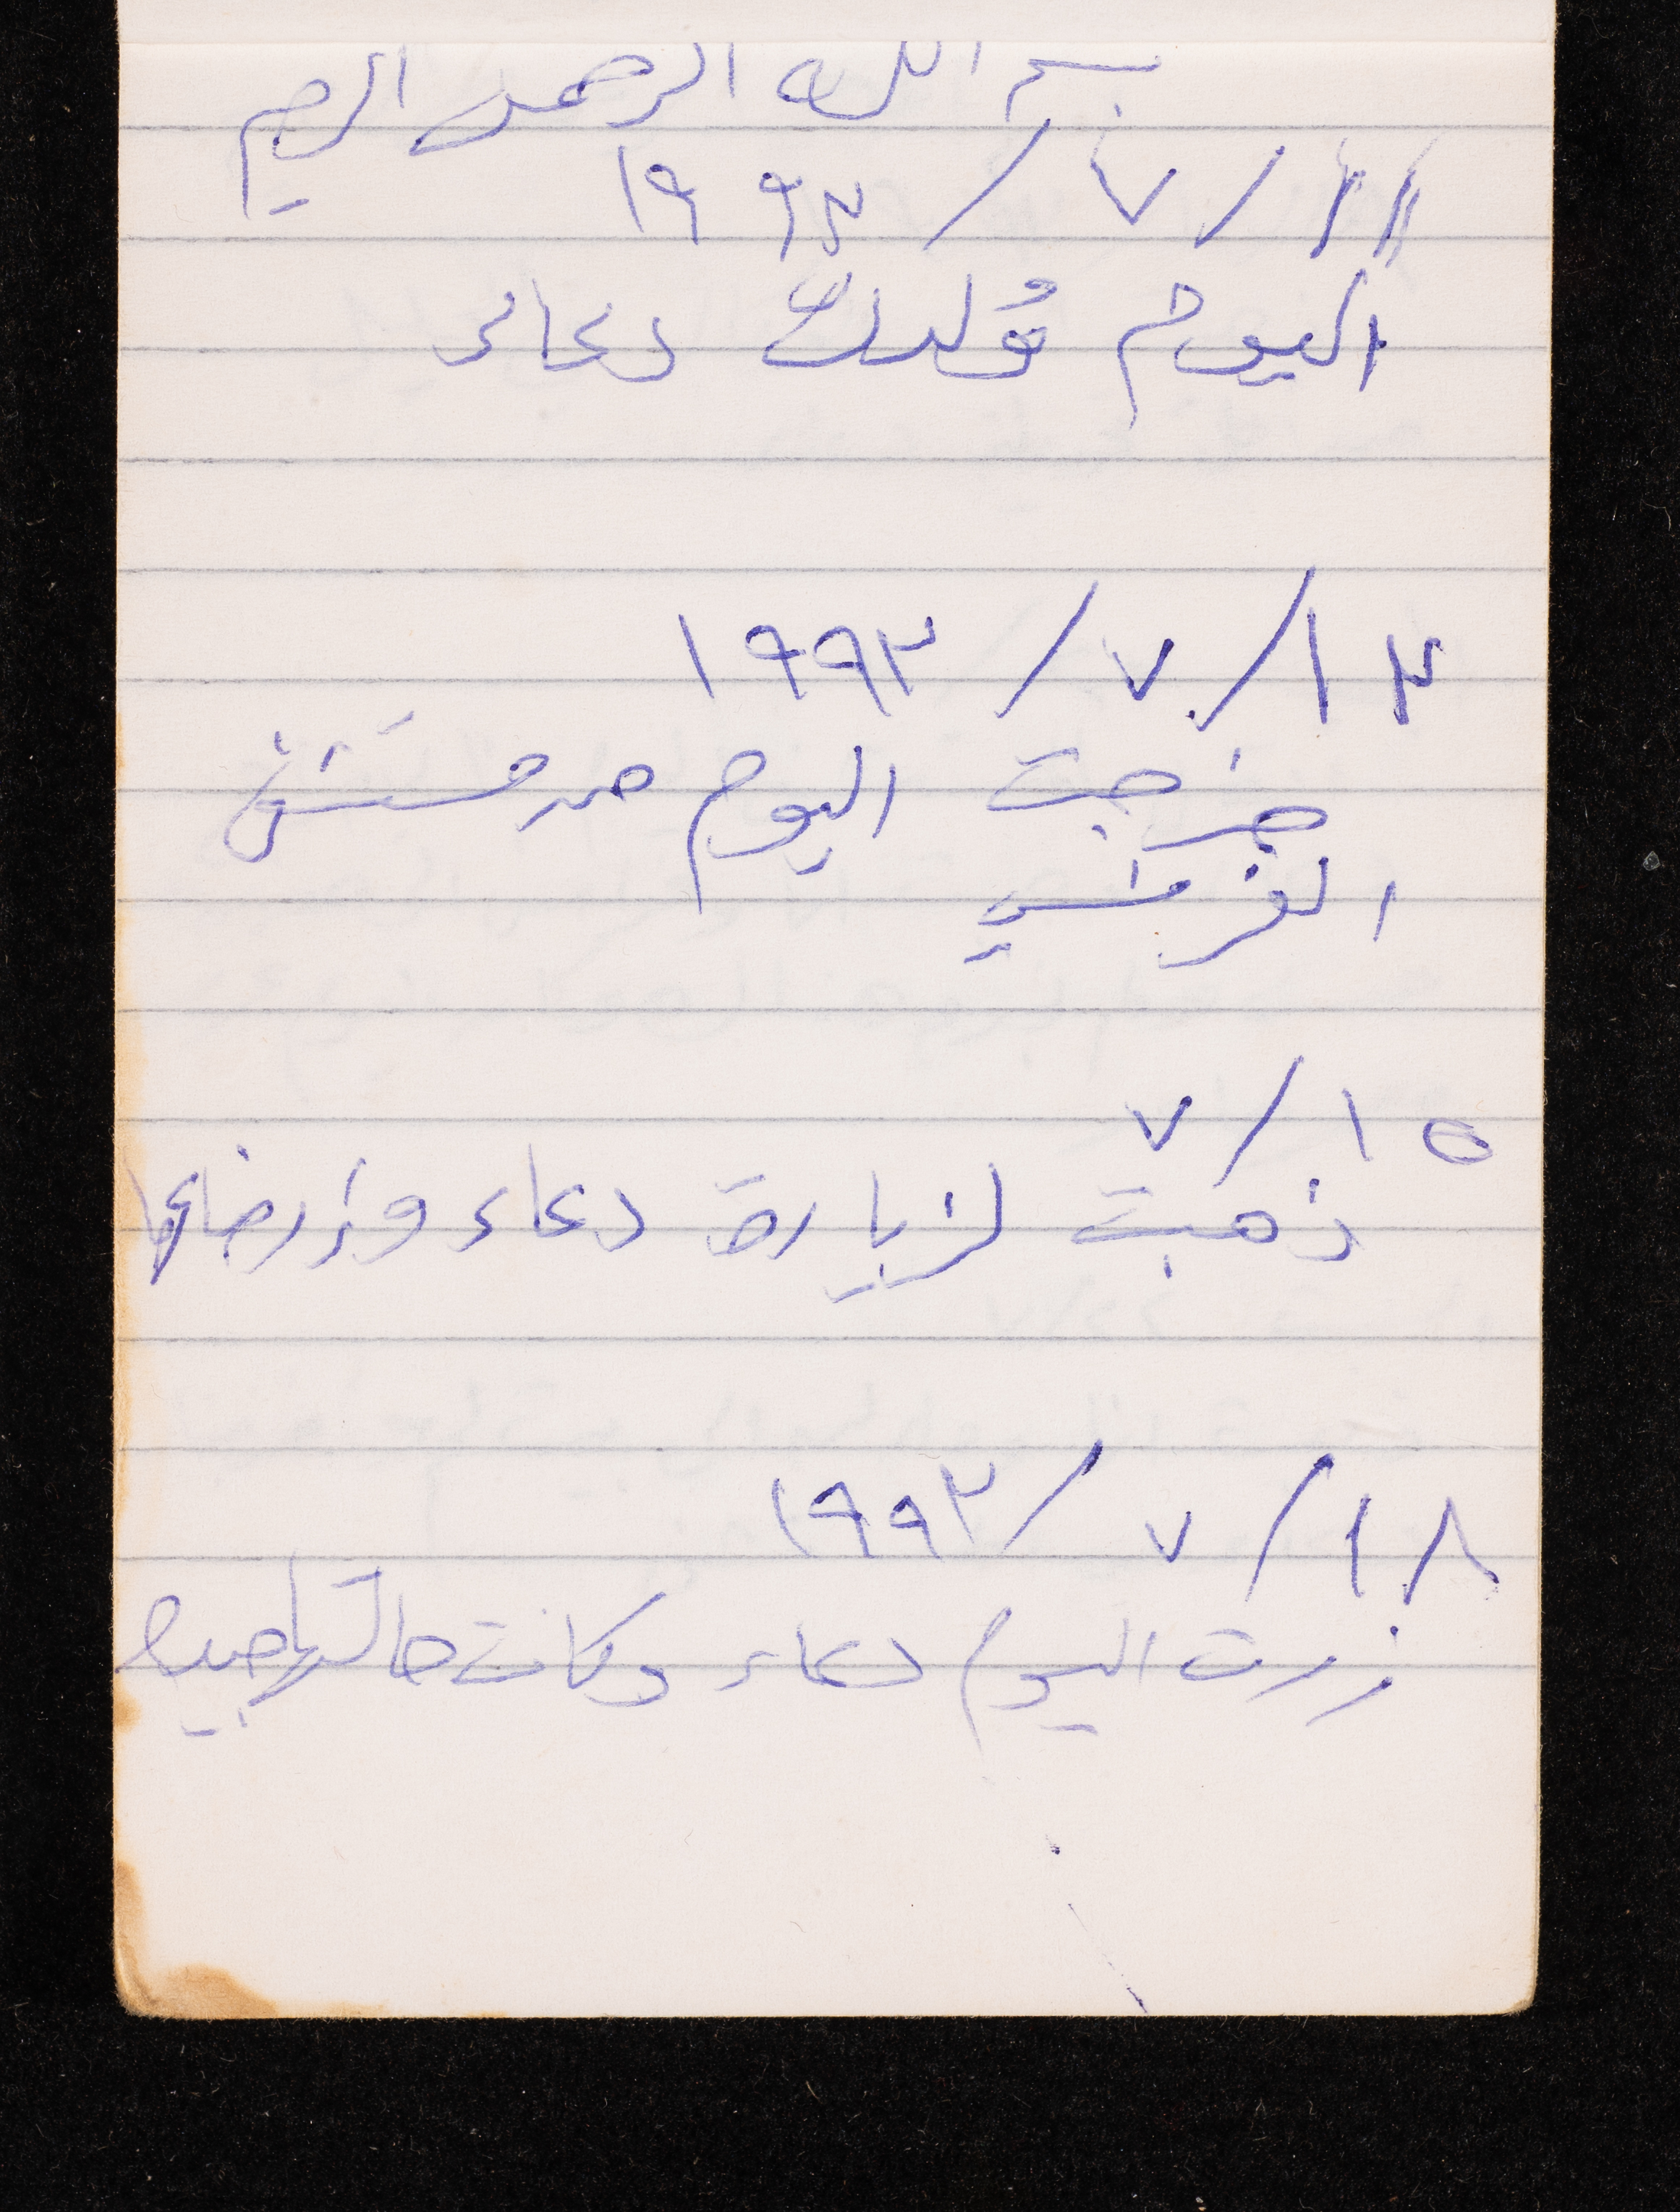 بسم الله الرحمن الرحيم
١١/٧/١٩٩٣
اليوم وُلدت دعاء
١٣/٧/١٩٩٣
خرجت اليوم من مستشفى
الفرنسي
١٥/٧
ذهبت لزيارة دعاء وإرضاعها
١٨/٧/١٩٩٣
زرت اليوم دعاء وكانت حالتها جيده